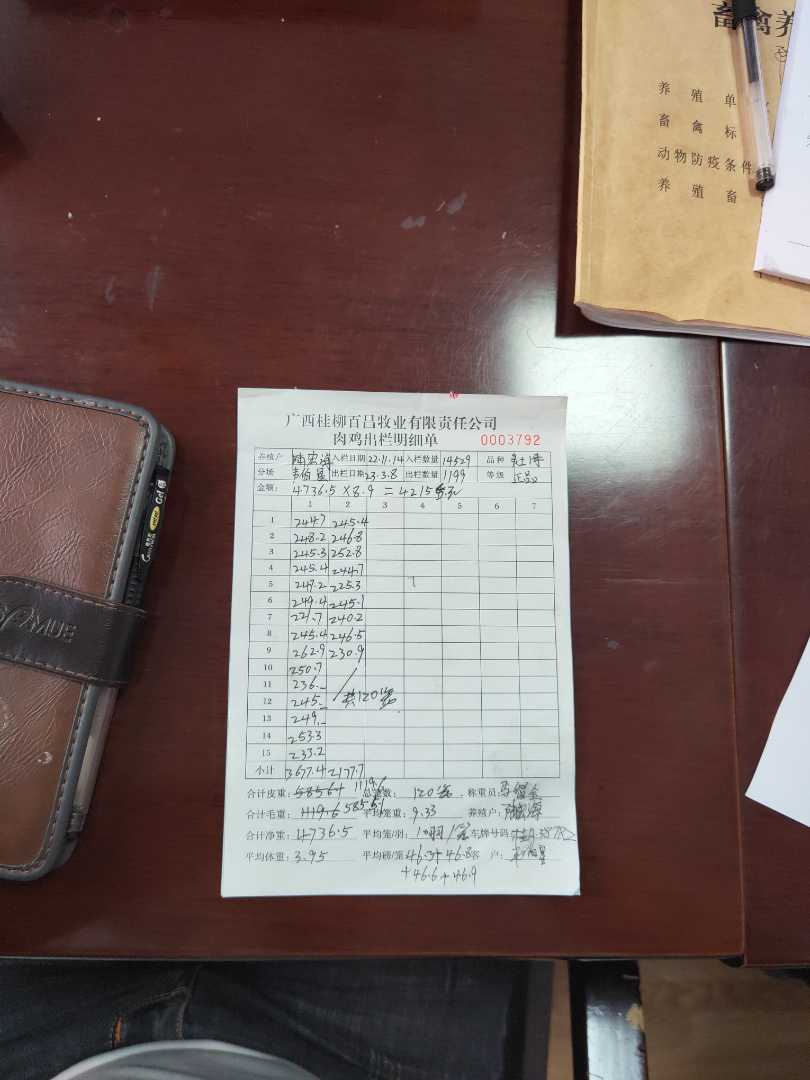 畜禽养
养殖单
畜禽标
动物防疫条件
养殖畜
Gel
BUMYE
广西桂柳百昌牧业有限责任公司
肉鸡出栏明细单 0003792
养殖户 入栏日期 22.11.14 入栏数量 14529 品种
分场 出栏日期 23.3.8 出栏数量 1199 等级 正品
金额: 4736.5 × 8.9 = 42155元
1 2 3 4 5 6 7
1 244.7 245.4
2 248.2 246.8
3 245.3 252.8
4 245.4 244.7
5 249.2 225.3
6 249.4 245.1
7 221.7 240.2
8 245.4 246.5
9 262.9 230.9
10 250.7
11 236.-
12 245.- 共120笼
13 249.-
14 253.3
15 233.2
小计 3677.4 2177.7
合计皮重: 1119.6 总笼数: 120笼 称重员:
合计毛重: 5855.1 平均笼重: 9.33 养殖户:
合计净重: 4736.5 平均笼/羽: 10羽/笼 车牌号码
平均体重: 3.95 平均磅/笼 46.3+46.8 客户:
+46.6+46.9